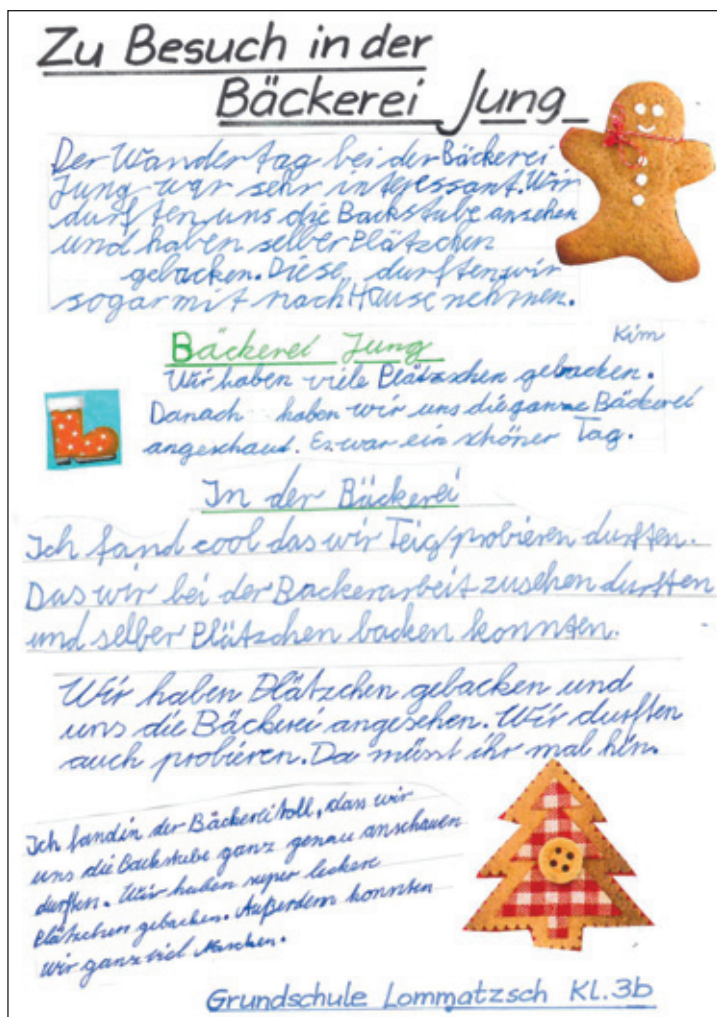 Zu Besuch in der
Bäckerei Jung
Der Wandertag bei der Bäckerei
Jung war sehr interessant. Wir
durften uns die Backstube ansehen
und haben selber Plätzchen
gebacken. Diese durften wir
sogar mit nach Hause nehmen.
Kim
Bäckerei Jung
Wir haben viele Plätzschen gebacken.
Danach haben wir uns die ganze Bäckerei
angeschaut. Es war ein schöner Tag.
In der Bäckerei
Ich fand cool das wir Teig probieren durften.
Das wir bei der Backerarbeit zusehen durften
und selber Plätzchen backen konnten.
Wir haben Plätzchen gebacken und
uns die Bäckerei angesehen. Wir durften
auch probieren. Da müsst ihr mal hin.
Ich fand in der Bäckerei toll, dass wir
uns die Backstube ganz genau anschauen
durften. Wir haben super leckere
Plätzchen gebacken. Außerdem konnten
wir ganz viel naschen.
Grundschule Lommatzsch Kl. 3b